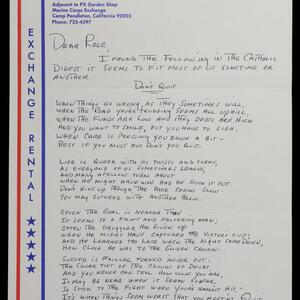 Adjacent to PX Garden Shop
Marine Corps Exchange
Camp Pendleton, California 92055
Phone: 725-4397
EXCHANGE RENTAL
DEAR ROSE,
I FOUND THE FOLLOWING IN THE CATHOLIC
DIGEST IT SEEMS TO FIT MOST OF US SOMETIME OR
ANOTHER.
DON'T QUIT
WHEN THINGS GO WRONG, AS THEY SOMETIMES WILL,
WHEN THE ROAD YOU'RE TRUDGING SEEMS ALL UPHILL,
WHEN THE FUNDS ARE LOW AND THE DEBTS ARE HIGH
AND YOU WANT TO SMILE, BUT YOU HAVE TO SIGH,
WHEN CARE IS PRESSING YOU DOWN A BIT -
REST IF YOU MUST BUT DON'T YOU QUIT.
LIFE IS QUEER WITH ITS TWISTS AND TURNS,
AS EVERYONE OF US SOMETIMES LEARNS,
AND MANY A FELLOW TURNS ABOUT
WHEN HE MIGHT HAVE WON HAD HE STUCK IT OUT
DON'T GIVE UP THOUGH THE PACE SEEMS SLOW -
YOU MAY SUCCEED WITH ANOTHER BLOW.
OFTEN THE GOAL IS NEARER THAN
IT SEEMS TO A FAINT AND FALTERING MAN;
OFTEN THE STRUGGLER HAS GIVEN UP
WHEN HE MIGHT HAVE CAPTURED THE VICTOR'S CUP;
AND HE LEARNED TOO LATE WHEN THE NIGHT CAME DOWN,
HOW CLOSE HE WAS TO THE GOLDEN CROWN.
SUCCESS IS FAILURE TURNED INSIDE OUT -
THE SILVER TINT OF THE CLOUDS OF DOUBT
AND YOU NEVER CAN TELL HOW CLOSE YOU ARE,
IT MAY BE NEAR WHEN IT SEEMS SO FAR,
SO STICK TO THE FIGHT WHEN YOU'RE HARDEST HIT -
IT'S WHEN THINGS SEEM WORST THAT YOU MUSTN'T QUIT